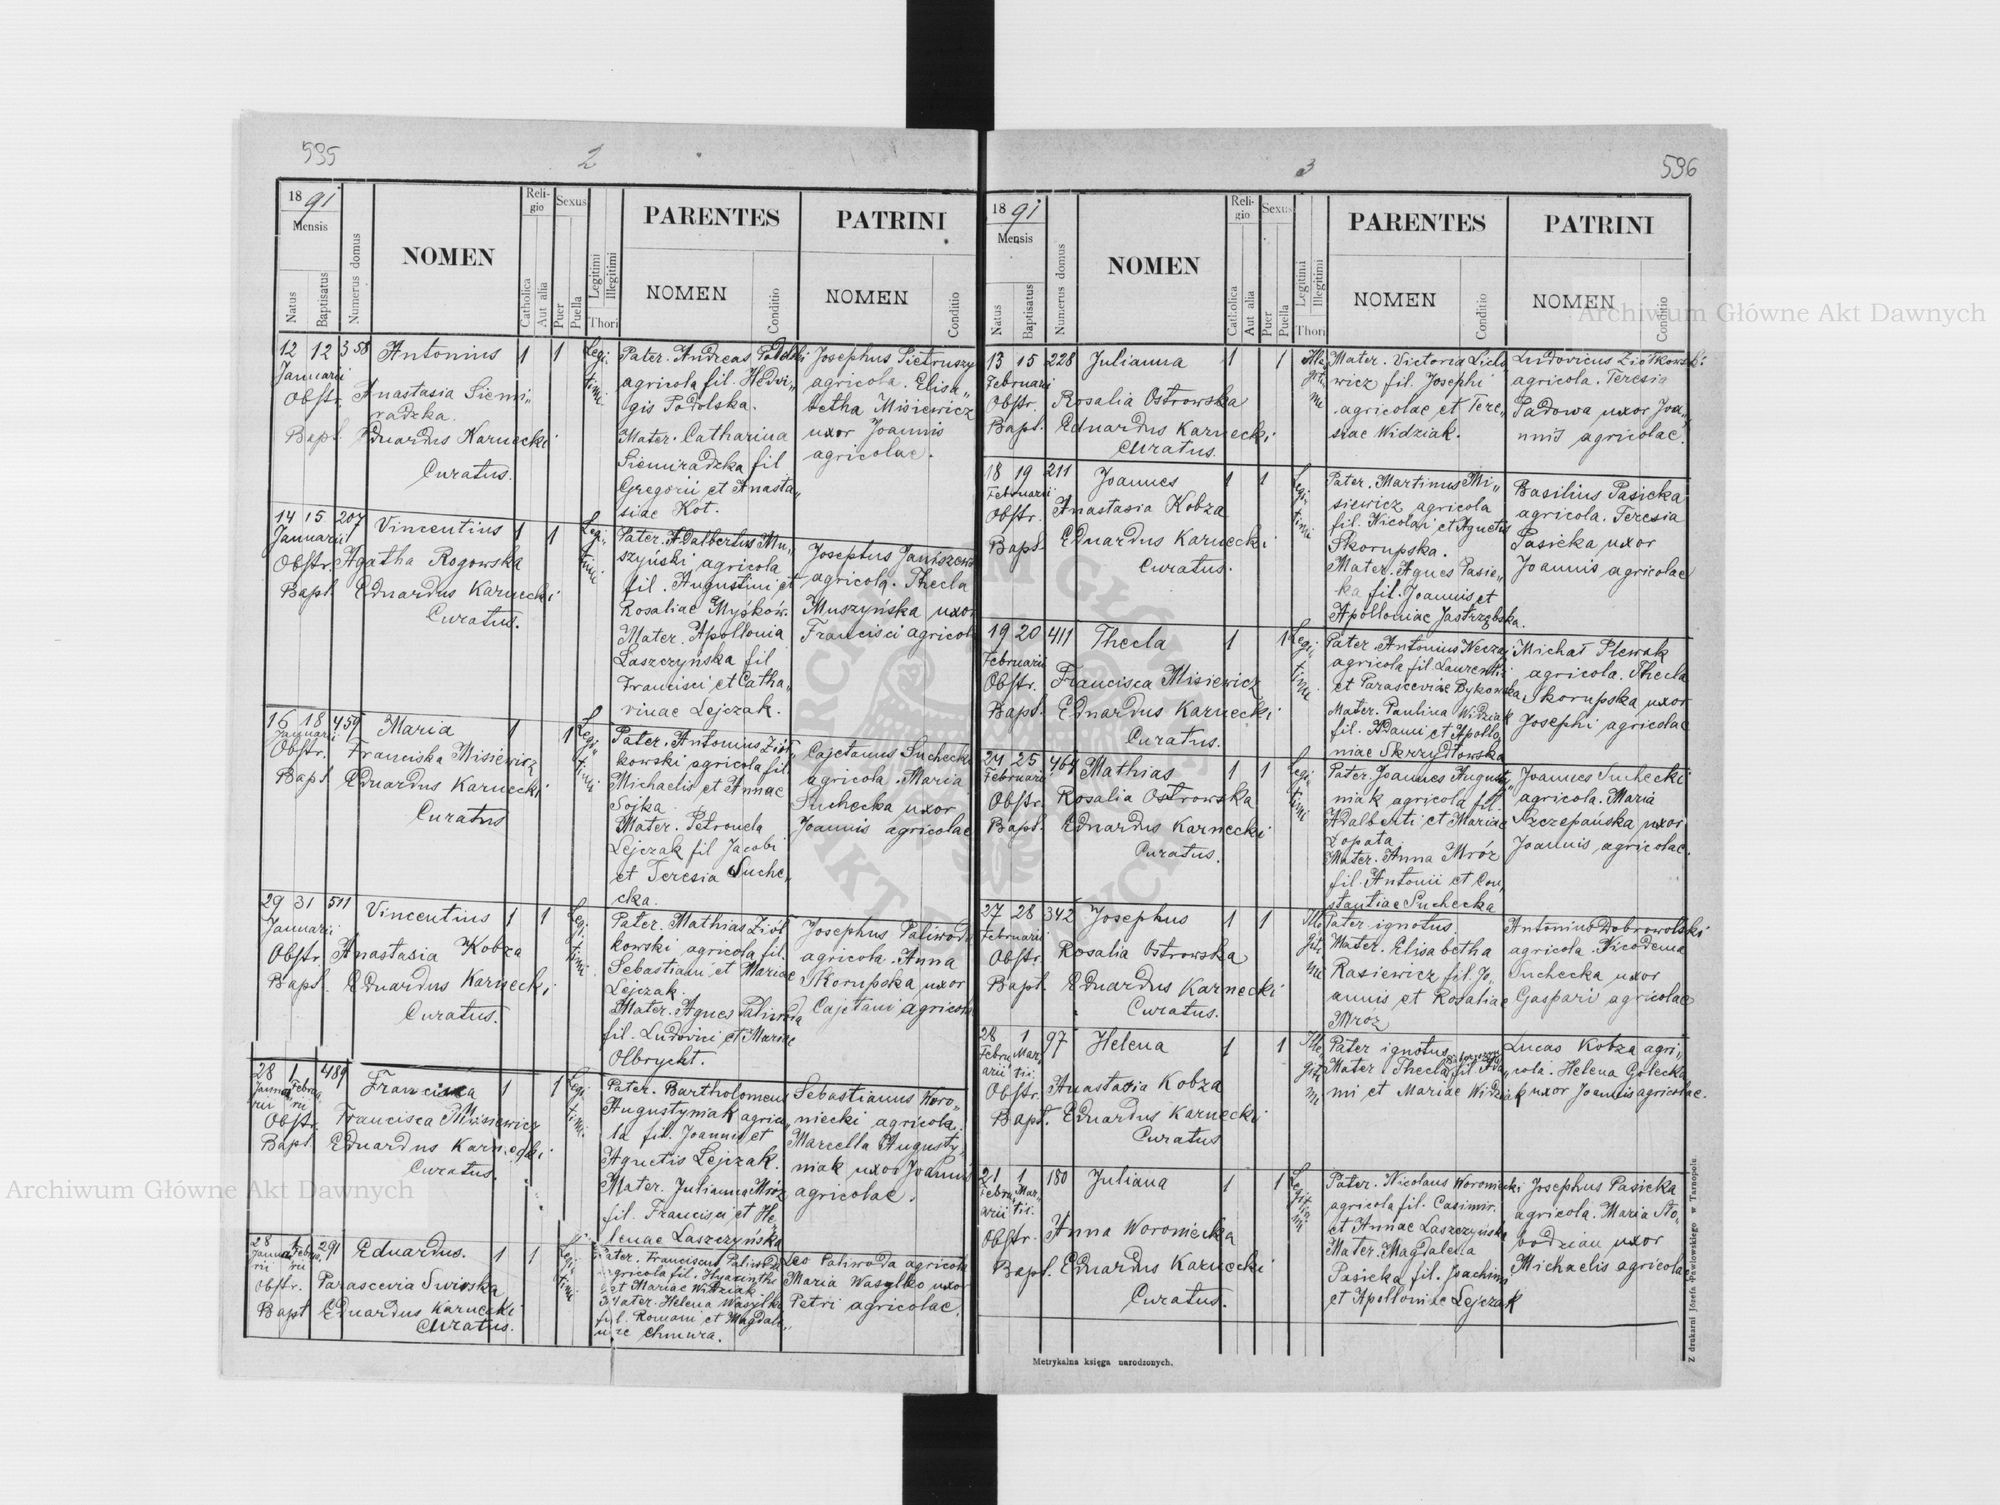 595
2
1891
Mensis
Natus
Baptisatus
Numerus domus
NOMEN
Religio
Catholica
Aut alia
Sexus
Puer
Puella
Legitimi
Illegitimi
Thori
PARENTES
NOMEN
Conditio
PATRINI
NOMEN
Conditio
12 12 358 Antonius 1 1 Legi-
timi
Januarii
Obstr. Anastasia Siemi„
radzka.
Bapt. Eduardus Karnecki
Curatus.
Pater. Andreas Podolski
agricola fil. Hedvi„
gis Podolska.
Mater. Catharina
Siemiradzka fil
Gregorii et Anasta„
siae Kot.
Josephus Pietruszy
agricola. Elisa„
betha Misiewicz
uxor Joannis
agricolae.
14 15 207 Vincentius 1 1 Legi-
timi
Januarii
Obstr. Agatha Rogowska
Bapt. Eduardus Karnecki
Curatus.
Pater. Adalbertus Mu„
szyński agricola
fil. Augustini et
Rosaliae Myśków.
Mater. Apollonia
Laszczyńska fil
Francisci et Catha„
rinae Lejczak.
Josephus Janiszews
agricola. Thecla
Muszyńska uxor
Francisci agricol
16 18 459 Maria 1 1 Legi-
timi
Januari
Obstr. Franciska Misiewicz
Bapt. Eduardus Karnecki
Curatus
Pater. Antonius Ziół„
kowski agricola fil
Michaelis et Annae
Sojka.
Mater. Petronela
Lejczak fil Jacobi
et Teresia Suche„
cka.
Cajetanus Suchecki
agricola. Maria
Suchecka uxor
Joannis agricolae
29 31 511 Vincentius 1 1 Legi-
timi
Januarii
Obstr. Anastasia Kobza
Bapt. Eduardus Karnecki
Curatus.
Pater. Mathias Ziół
kowski agricola fil.
Sebastiani et Mariae
Lejczak.
Mater. Agnes Paliwoda
fil. Ludovici et Mariae
Olbrycht.
Josephus Paliwoda
agricola. Anna
Skorupska uxor
Cajetani agricol
28 1 489 Francisca 1 1 Legi-
timi.
Janua Febru
rii rii
Obstr. Francisca Misiewicz
Bapt. Eduardus Karnecki
Curatus.
Pater. Bartholomeus
Augustyniak agrico„
la fil. Joannis et
Agnetis Lejczak.
Mater. Julianna Mróz
fil. Francisci et He„
lenae Laszczyńska
Sebastianus Woro„
niecki agricola.
Marcella Augusty„
niak uxor Joannis
agricolae.
28 1 291 Eduardus. 1 1 Legi-
timi
Janua Febru
rii rii
Obstr. Parascevia Surowska
Bapt Eduardus Karnecki
Curatus.
Pater. Franciscus Paliwoda
agricola fil. Hyacinthi
et Mariae Widziak
Mater. Helena Wasylko
fil. Romani et Magdale„
nae Chmura.
Leo Paliwoda agricola
Maria Wasylko uxor
Petri agricolae.
3
596
1891
Mensis
Natus
Baptisatus
Numerus domus
NOMEN
Religio
Catholica
Aut alia
Sexus
Puer
Puella
Legitima
Illegitimi
Thori
PARENTES
NOMEN
Conditio
PATRINI
NOMEN
Conditio
13 15 228 Julianna 1 1 Ille-
giti-
mi
Februarii
Obstr. Rosalia Ostrowska
Bapt. Eduardus Karnecki
Curatus.
Mater. Victoria
wicz fil. Josephi
agricolae et Tere„
siae Widziak.
Ludovicus Ziółkowski
agricola. Teresia
Padowa uxor Joa„
nnis agricolae.
18 19 211 Joannes 1 1 Legi-
timi
Februarii
Obstr. Anastasia Kobza
Bapt. Eduardus Karnecki
Curatus.
Pater. Martinus Mi„
siewicz agricola
fil. Nicolai et Agnetis
Skorupska.
Mater. Agnes Pasie„
ka fil. Joannis et
Apolloniae Jastrzębska.
Basilius Pasieka
agricola. Teresia
Pasieka uxor
Joannis agricolae
19 20 411 Thecla 1 1 Legi-
timi
Februarii
Obstr. Francisca Misiewicz
Bapt. Eduardus Karnecki
Curatus.
Pater Antonius Neczaj
agricola fil Laurentii
et Parasceviae Bykowska.
Mater. Paulina Widziak
fil. Adami et Apollo„
niae Skrzydłowska
Michał Plewak
agricola. Thecla
Skorupska uxor
Josephi agricolae
24 25 464 Mathias 1 1 Legi-
timi
Februarii
Obstr. Rosalia Ostrowska
Bapt. Eduardus Karnecki
Curatus.
Pater. Joannes Augusty„
niak agricola fil.
Adalberti et Mariae
Łopata.
Mater. Anna Mróz
fil. Antonii et Con„
stantiae Suchecka
Joannes Suchecki
agricola. Maria
Szczepańska uxor
Joannis agricolae.
27 28 342 Josephus 1 1 Ille-
giti-
mi
Februarii
Obstr. Rosalia Ostrowska
Bapt. Eduardus Karnecki
Curatus.
Pater ignotus.
Mater. Elisabetha
Rasiewicz fil. Jo„
annis et Rosaliae
Mróz
Antonius Dobrowolski
agricola. Nicodema
Suchecka uxor
Gaspari agricolae
28 1 97 Helena 1 1 Ille-
giti-
mi
Febru Mar
arii tii.
Obstr. Anastasia Kobza
Bapt. Eduardus Karnecki
Curatus
Pater ignotus
Mater Thecla fil Ada„
mi et Mariae Widziak
Lucas Kobza agri„
cola. Helena Golecka
uxor Joannis agricolae.
21 1 180 Juliana 1 1 Legiti-
mi
Febru Mar„
arii tii.
Obstr. Anna Woroniecka
Bapt. Eduardus Karnecki
Curatus.
Pater. Nicolaus Woroniecki
agricola fil. Casimir.
et Annae Laszczyńska
Mater. Magdalena
Pasieka fil. Joachimi
et Apolloniae Lejczak
Josephus Pasieka
agricola. Maria Sło„
bodzian uxor
Michaelis agricola
Metrykalna księga narodzonych.
Z drukarni Józefa Pawłowskiego w Tarnopolu.
Archiwum Główne Akt Dawnych
Archiwum Główne Akt Dawnych
ARCHIWUM GŁÓWNE
AKT DAWNYCH